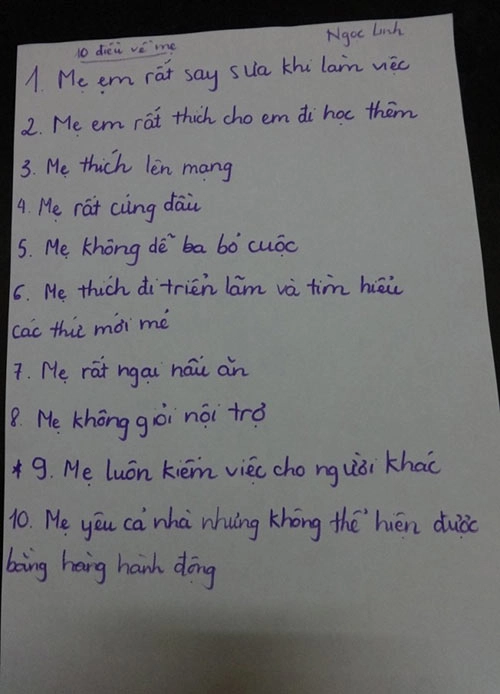 10 điều về mẹ
Ngọc Linh
1. Mẹ em rất say sưa khi làm việc
2. Mẹ em rất thích cho em đi học thêm
3. Mẹ thích lên mạng
4. Mẹ rất cứng đầu
5. Mẹ không dễ ba bỏ cuộc
6. Mẹ thích đi triển lãm và tìm hiểu
các thứ mới mẻ
7. Mẹ rất ngại nấu ăn
8. Mẹ không giỏi nội trợ
* 9. Mẹ luôn kiếm việc cho người khác
10. Mẹ yêu cả nhà nhưng không thể hiện được
bằng hàng hành động